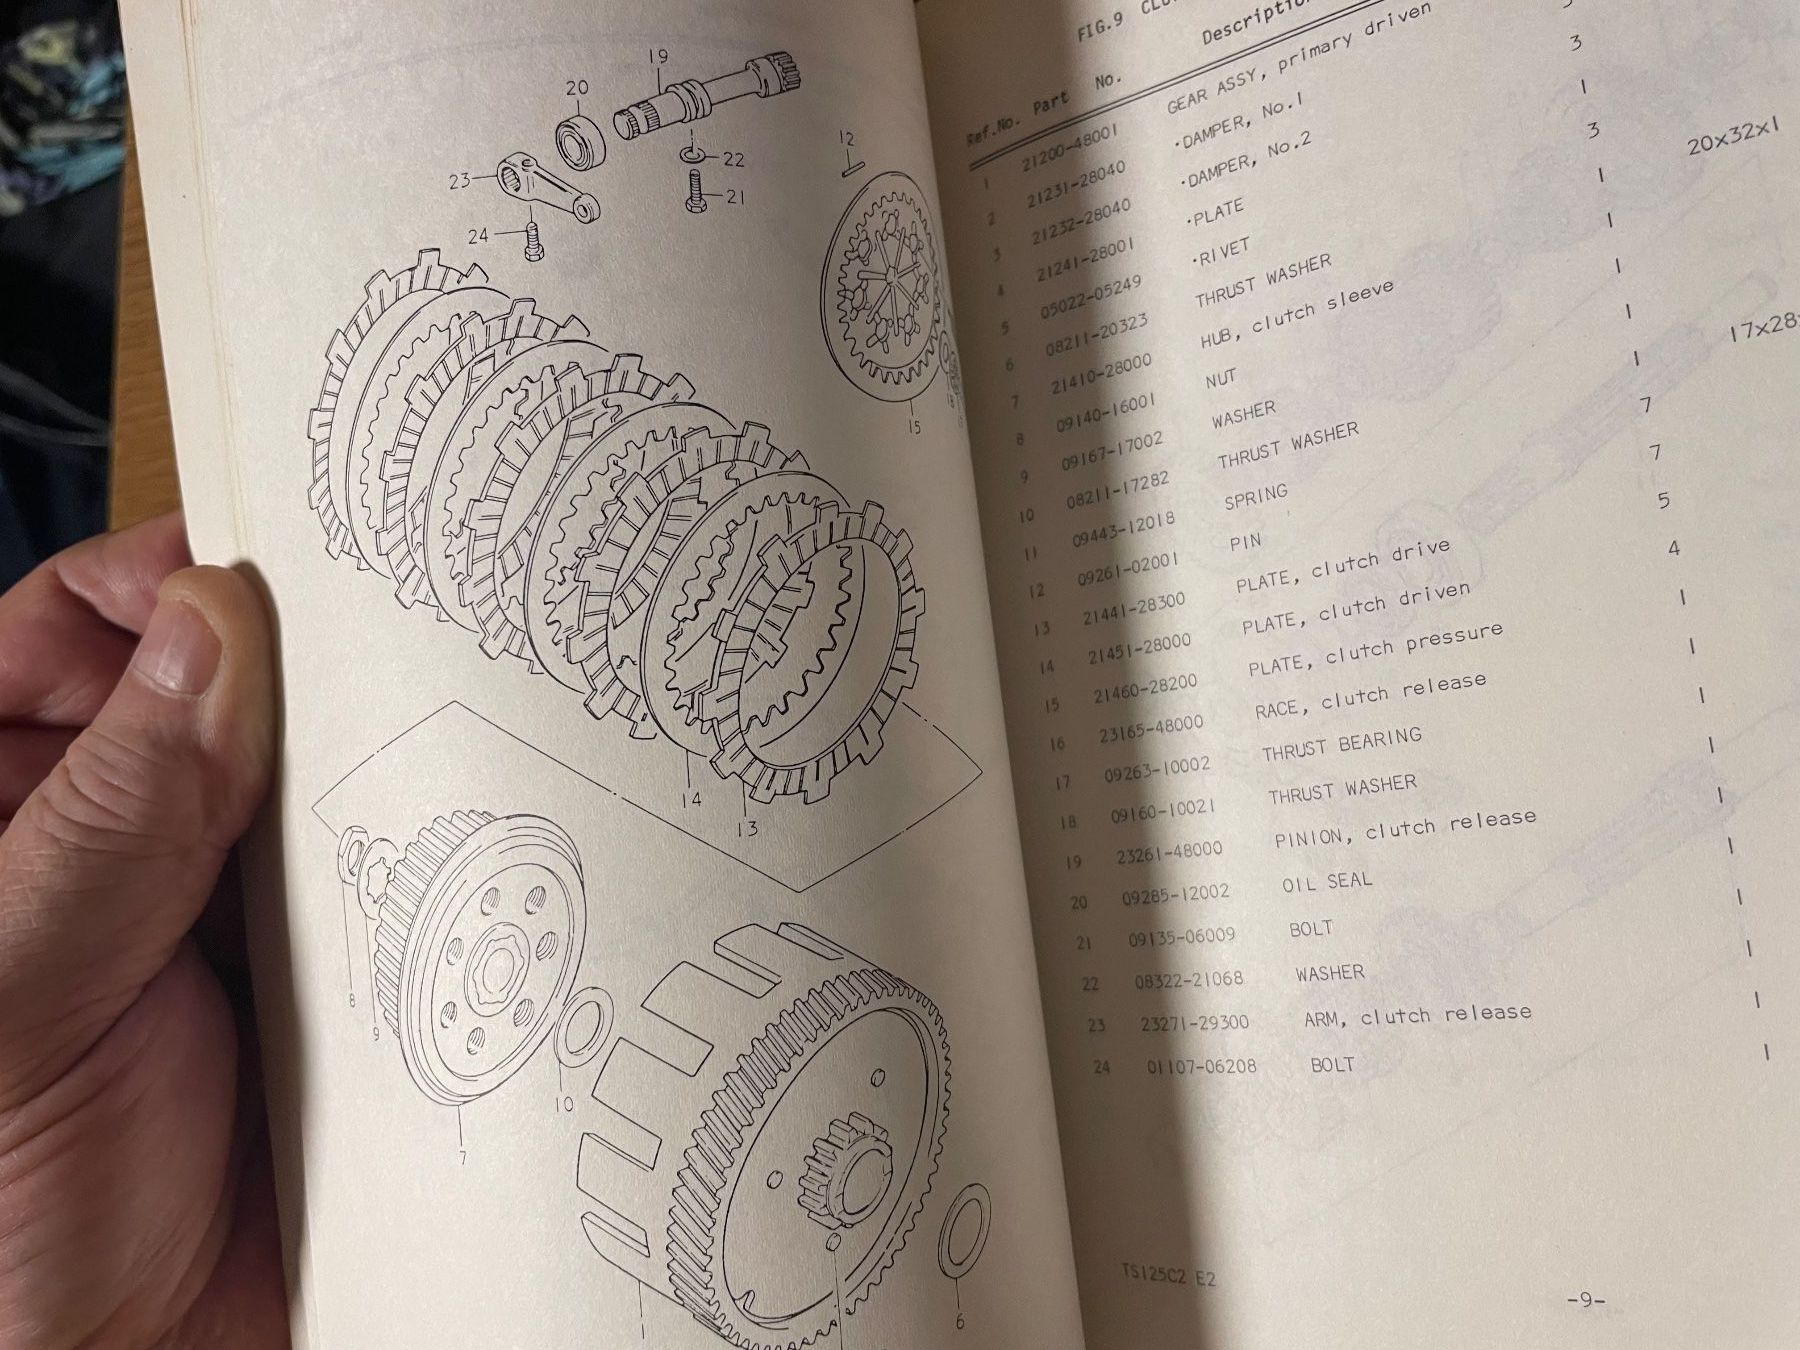 19
20
12
22
23
21
24
15
14
13
8
9
10
7
1
6
FIG.9
Ref.No. Part No. Description
1 21200-48001 GEAR ASSY, primary driven
2 21231-28040 ·DAMPER, No.1
3 21232-28040 ·DAMPER, No.2 3
4 21241-28001 ·PLATE 1
5 05022-05249 ·RIVET 3
6 08211-20323 THRUST WASHER 1 20x32x1
7 21410-28000 HUB, clutch sleeve 1
8 09140-16001 NUT 1
9 09167-17002 WASHER 1
10 08211-17282 THRUST WASHER 1 17x28
11 09443-12018 SPRING 7
12 09261-02001 PIN 7
13 21441-28300 PLATE, clutch drive 5
14 21451-28000 PLATE, clutch driven 4
15 21460-28200 PLATE, clutch pressure 1
16 23165-48000 RACE, clutch release 1
17 09263-10002 THRUST BEARING 1
18 09160-10021 THRUST WASHER 1
19 23261-48000 PINION, clutch release 1
20 09285-12002 OIL SEAL 1
21 09135-06009 BOLT 1
22 08322-21068 WASHER 1
23 23271-29300 ARM, clutch release 1
24 01107-06208 BOLT 1
TS125C2 E2
-9-